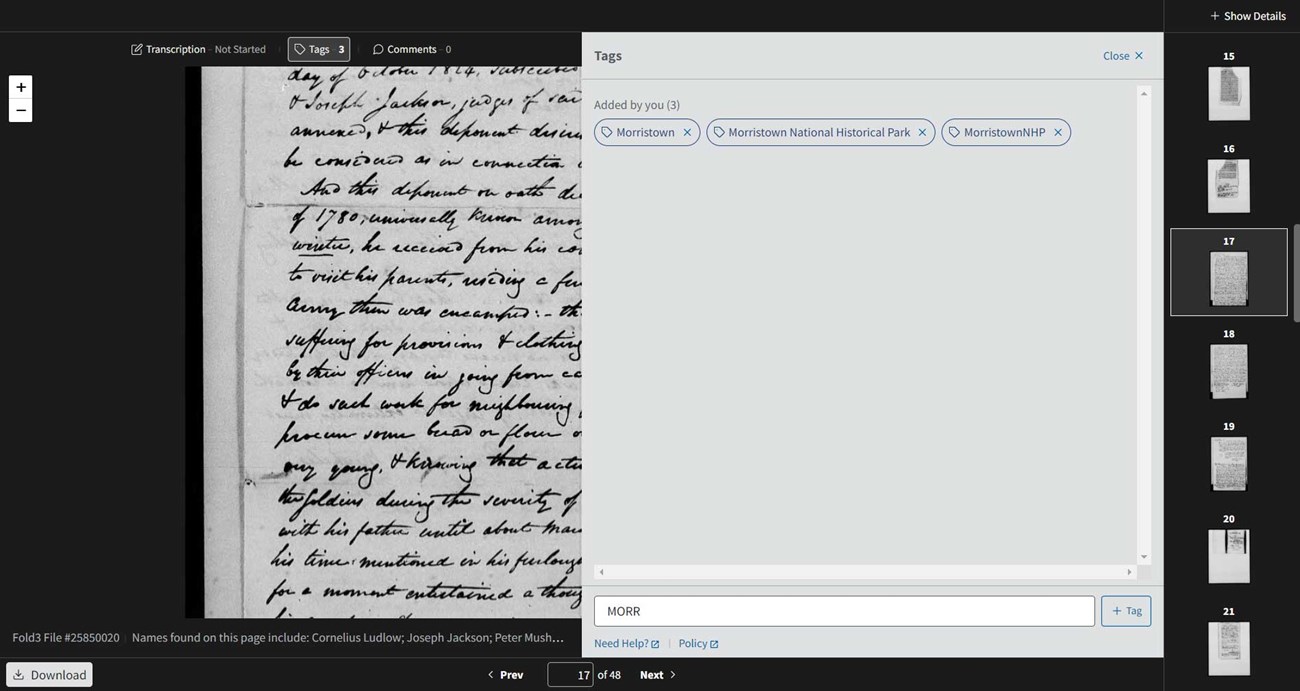 + Show Details
Transcription - Not Started
Tags - 3
Comments - 0
Tags
Close ×
Added by you (3)
Morristown ×
Morristown National Historical Park ×
MorristownNHP ×
+
−
day of October 1814, subscribed
& Joseph Jackson, judges of
annexed, & this deponent
be considered as in connection
And this deponent on oath
of 1780, universally known among
winter, he received from his
to visit his parents, residing a few
Army then was encamped: -
suffering for provisions & clothing
by their officers in going from
& do such work for neighbouring
procure some bread or flour
my young, & knowing that
the soldiers during the severity of
with his father until about
his time mentioned in his furlough
for a moment entertained a
MORR
+ Tag
Need Help?
Policy
Fold3 File #25850020
Names found on this page include: Cornelius Ludlow; Joseph Jackson; Peter Mush...
Download
< Prev
17 of 48
Next >
15
16
17
18
19
20
21